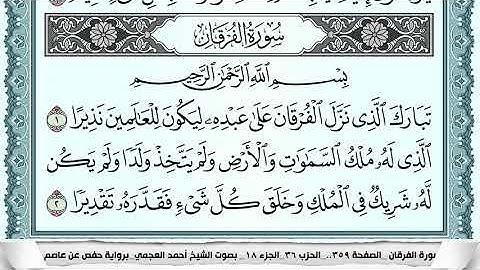 سُورَةُ الْفُرْقَانِ
بِسْمِ اللَّهِ الرَّحْمَٰنِ الرَّحِيمِ
تَبَارَكَ الَّذِي نَزَّلَ الْفُرْقَانَ عَلَىٰ عَبْدِهِ لِيَكُونَ لِلْعَالَمِينَ نَذِيرًا ١
الَّذِي لَهُ مُلْكُ السَّمَاوَاتِ وَالْأَرْضِ وَلَمْ يَتَّخِذْ وَلَدًا وَلَمْ يَكُن
لَّهُ شَرِيكٌ فِي الْمُلْكِ وَخَلَقَ كُلَّ شَيْءٍ فَقَدَّرَهُ تَقْدِيرًا ٢
سورة الفرقان _ الصفحة ٣٥٩.. الحزب ٣٦_ الجزء ١٨ _ بصوت الشيخ أحمد العجمي برواية حفص عن عاصم